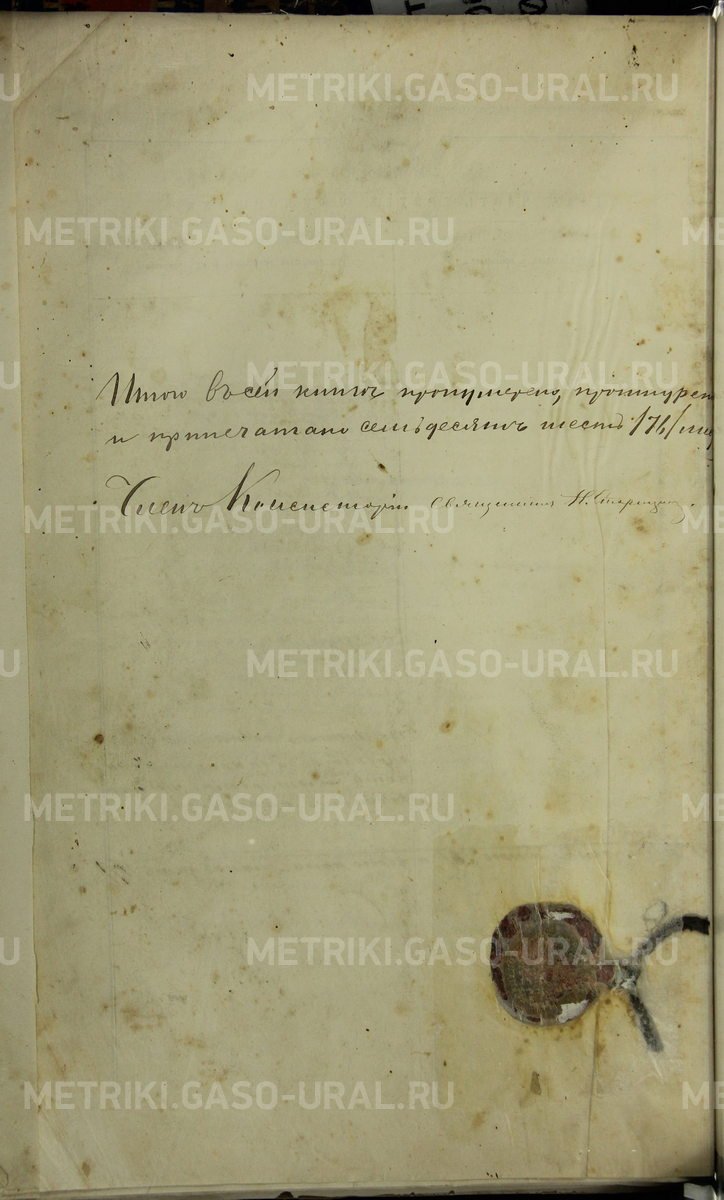 METRIKI.GASO-URAL.RU
METRIKI.GASO-URAL.RU
Итого въ сей книгѣ пронумерено, прошнурен
и припечатано семьдесятъ шесть /76/
METRIKI.GASO-URAL.RU
Членъ Консисторіи Священникъ Н.
METRIKI.GASO-URAL.RU
METRIKI.GASO-URAL.RU
METRIKI.GASO-URAL.RU
METRIKI.GASO-URAL.RU
METRIKI.GASO-URAL.RU